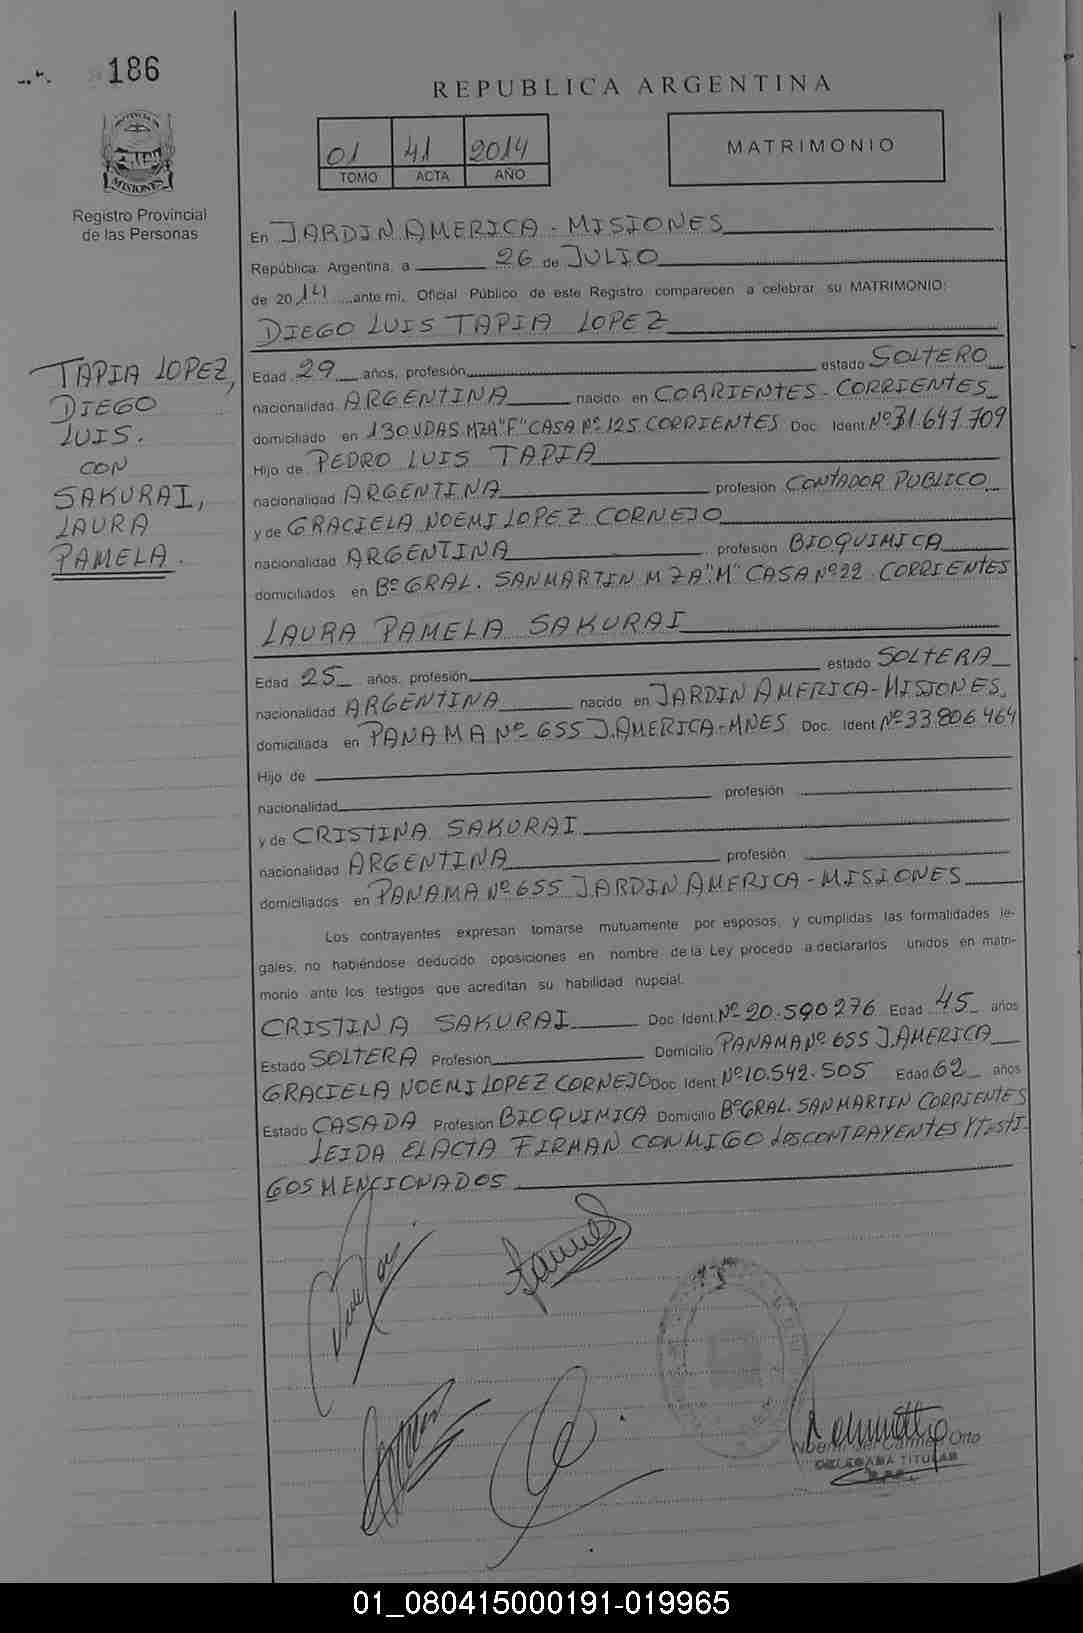 186
REPUBLICA ARGENTINA
01 41 2014
TOMO ACTA AÑO
MATRIMONIO
PROVINCIA DE
MISIONES
Registro Provincial
de las Personas
En JARDIN AMERICA - MISIONES
República Argentina, a 26 de JULIO
de 2014 ante mi, Oficial Público de este Registro comparecen a celebrar su MATRIMONIO:
DIEGO LUIS TAPIA LOPEZ
TAPIA LOPEZ,
DIEGO
LUIS.
CON
SAKURAI,
LAURA
PAMELA.
Edad 29 años, profesión estado SOLTERO
nacionalidad ARGENTINA nacido en CORRIENTES - CORRIENTES
domiciliado en 130 VDAS MZA "F" CASA Nº 125 CORRIENTES Doc. Ident. Nº 31.647.709
Hijo de PEDRO LUIS TAPIA
nacionalidad ARGENTINA profesión CONTADOR PUBLICO
y de GRACIELA NOEMI LOPEZ CORNEJO
nacionalidad ARGENTINA profesión BIOQUIMICA
domiciliados en Bº GRAL. SAN MARTIN MZA "M" CASA Nº 22 CORRIENTES
LAURA PAMELA SAKURAI
Edad 25 años, profesión estado SOLTERA
nacionalidad ARGENTINA nacido en JARDIN AMERICA - MISIONES
domiciliada en PANAMA Nº 655 J. AMERICA - MNES Doc. Ident. Nº 33.806 464
Hijo de
nacionalidad profesión
y de CRISTINA SAKURAI
nacionalidad ARGENTINA profesión
domiciliados en PANAMA Nº 655 JARDIN AMERICA - MISIONES
Los contrayentes expresan tomarse mutuamente por esposos, y cumplidas las formalidades le-
gales, no habiéndose deducido oposiciones en nombre de la Ley procedo a declararlos unidos en matri-
monio ante los testigos que acreditan su habilidad nupcial:
CRISTINA SAKURAI Doc. Ident. Nº 20.590276 Edad 45 años
Estado SOLTERA Profesión Domicilio PANAMA Nº 655 J. AMERICA
GRACIELA NOEMI LOPEZ CORNEJO Doc. Ident. Nº 10.542.505 Edad 62 años
Estado CASADA Profesión BIOQUIMICA Domicilio Bº GRAL. SAN MARTIN CORRIENTES
LEIDA EL ACTA FIRMAN CONMIGO LOS CONTRAYENTES Y TESTI-
GOS MENCIONADOS
del Carmen Orto
DELEGADA TITULAR
01_080415000191-019965